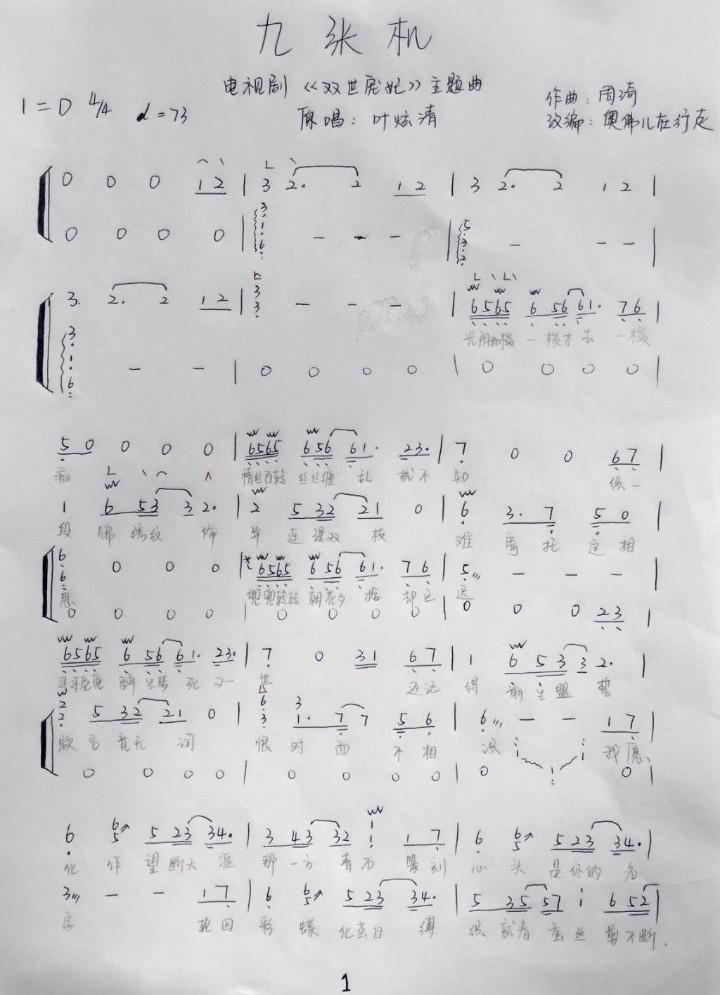 九张机
电视剧《双世宠妃》主题曲
1=D 4/4 ♩=73 作曲:周琦
原唱:叶炫清 改编:奥佛儿在行走
0 0 0 1 2 | 3 2· 2 1 2 | 3 2· 2 1 2 |
0 0 0 0 | 3 1 6 - - - | 5 3 2 - - - |
3 2· 2 1 2 | 3 3 - - - | 6565 6 56 61· 76 |
光阴如梭 一梭才去 一梭
3 1 6 - - | 0 0 0 0 | 0 0 0 0 |
5 0 0 0 0 | 6565 656 61· 23· | 7 0 0 67 |
痴 情丝百转 丝丝缠 乱 犹不 知 织一
1 6 53 3 2· | 2 5 32 21 0 | 6 3· 7 5 0 |
段 锦绣纹 饰 并 连理双 枝 难 寄托 这相
6 6 0 0 0 | 6565 656 61· 76 | 5 - - - |
思 兜兜转转 朝花夕 拾 却已 迟
0 0 0 0 | 0 0 0 0 | 0 0 0 23 |
6565 6 56 61· 23· | 7 0 31 67 | 1 6 53 3 2· |
寻寻觅觅 醉生梦 死 又一 世 还记 得 前生盟 誓
2 2 5 32 21 0 | 6 3 3 1· 7 7 5 6 | 6 - - 17 |
欲言竟无 词 恨 对面 不相 识 我愿、
0 0 0 0 | 0 0 0 0 | 0 0
6 6 5 5 23 34· | 3 43 32 1 17 | 6 6 5 5 23 34· |
化 作 望断天 涯 那一方 青石 篆刻 心 头 是你的 名
3 - - 17 | 6 6 5 5 23 34· | 5 35 57 i 6 52 |
字 轮回 彩 蝶 化茧自 缚 织就春 蚕丝 剪不断.
1